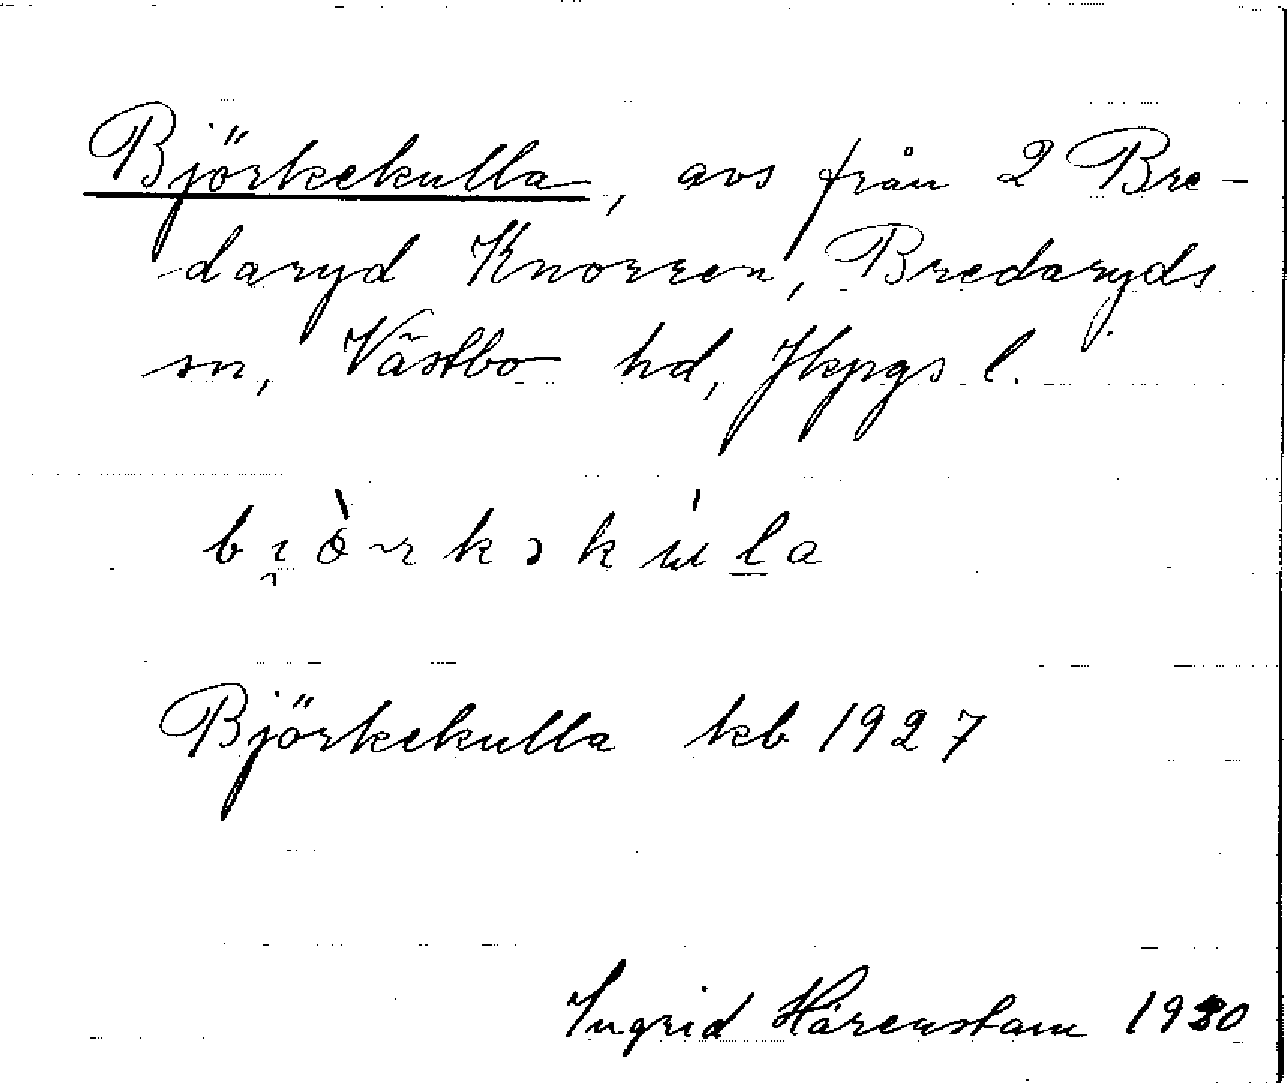 Björkekulla, avs från 2 Bre-
daryd Knorren, Bredaryds
sn, Västbo hd, Jkpgs l.
Björkekulla kb 1927
Ingrid Härenstam 1930